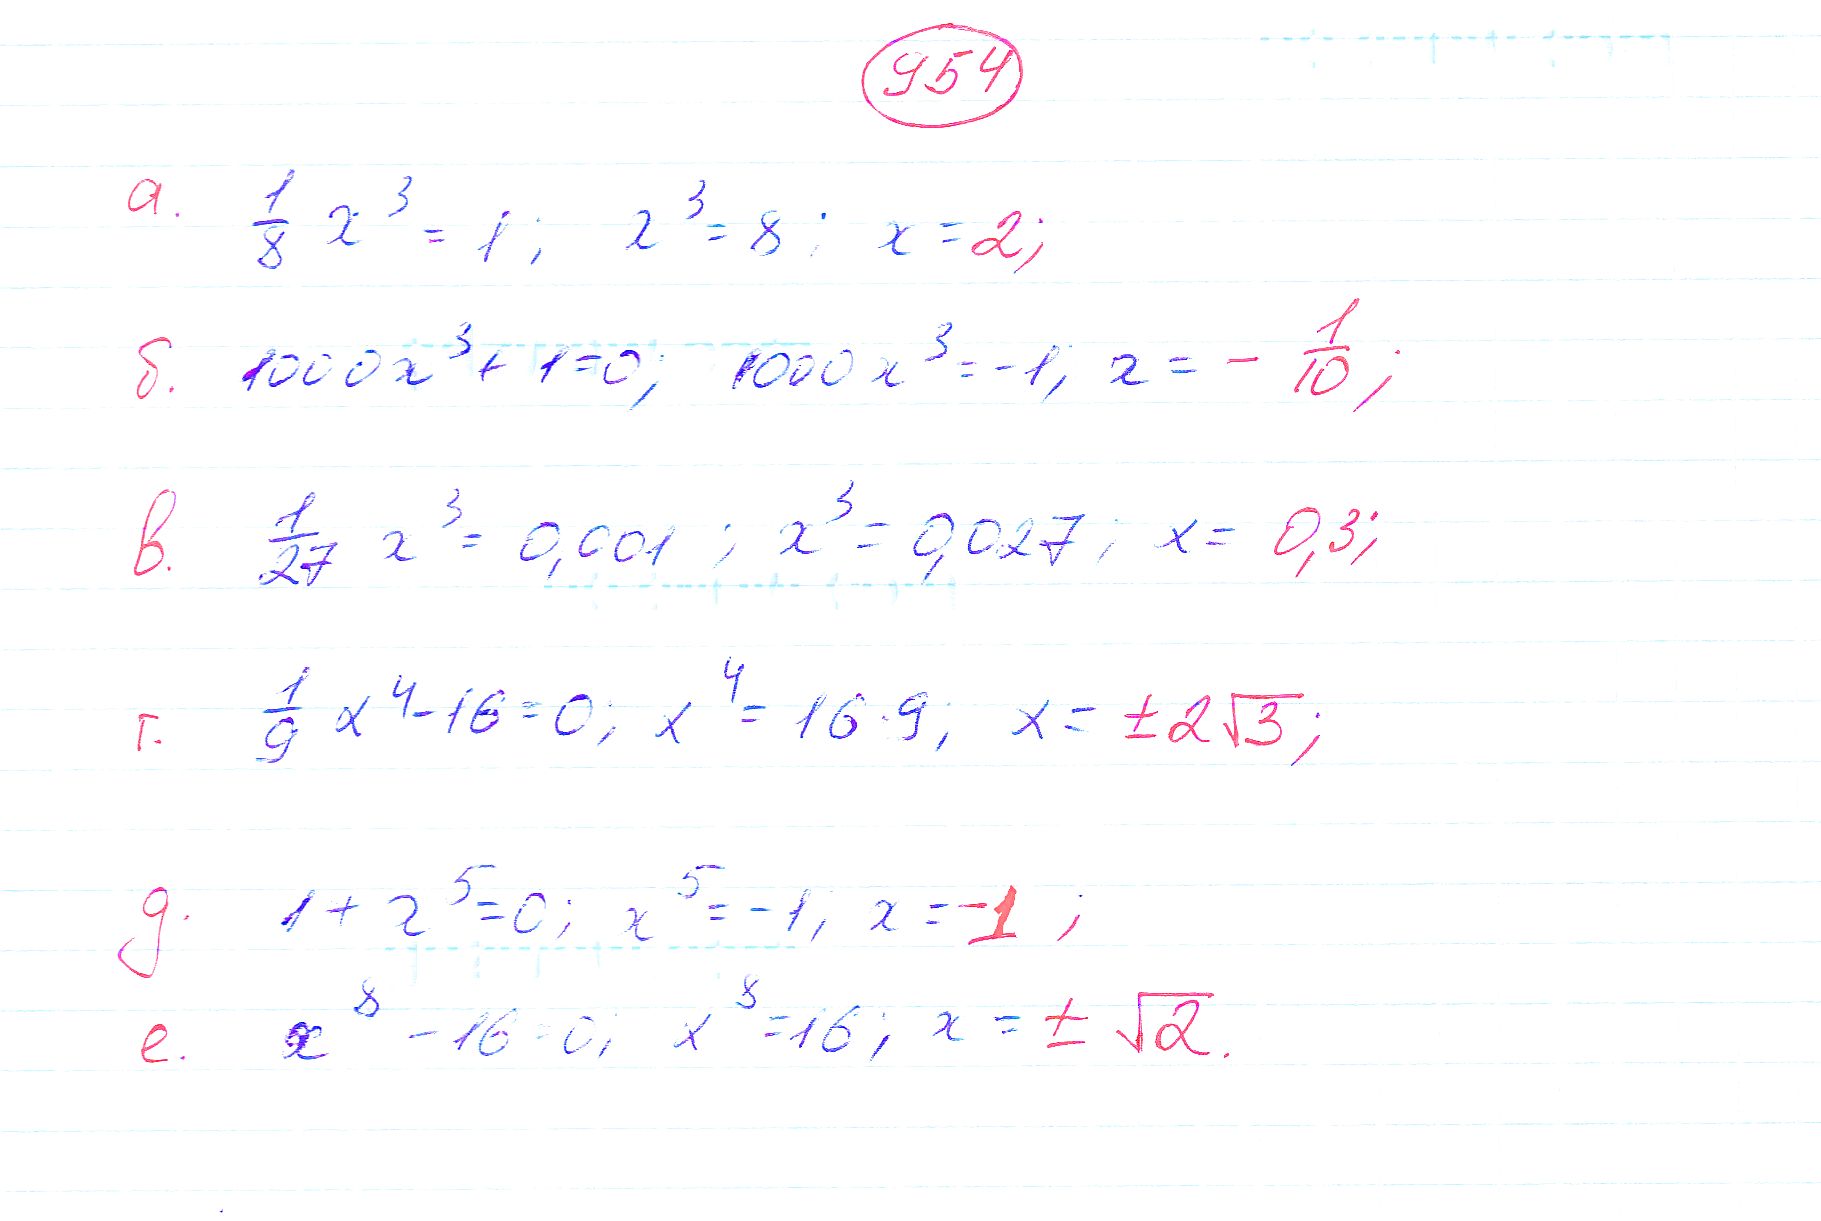 954
а. 1/8 x³ = 1; x³ = 8; x = 2;
б. 1000x³ + 1 = 0; 1000x³ = -1; x = - 1/10;
в. 1/27 x³ = 0,001; x³ = 0,027; x = 0,3;
г. 1/9 x⁴ - 16 = 0; x⁴ = 16·9; x = ±2√3;
д. 1 + x⁵ = 0; x⁵ = -1; x = -1;
е. x⁸ - 16 = 0; x⁸ = 16; x = ± √2.